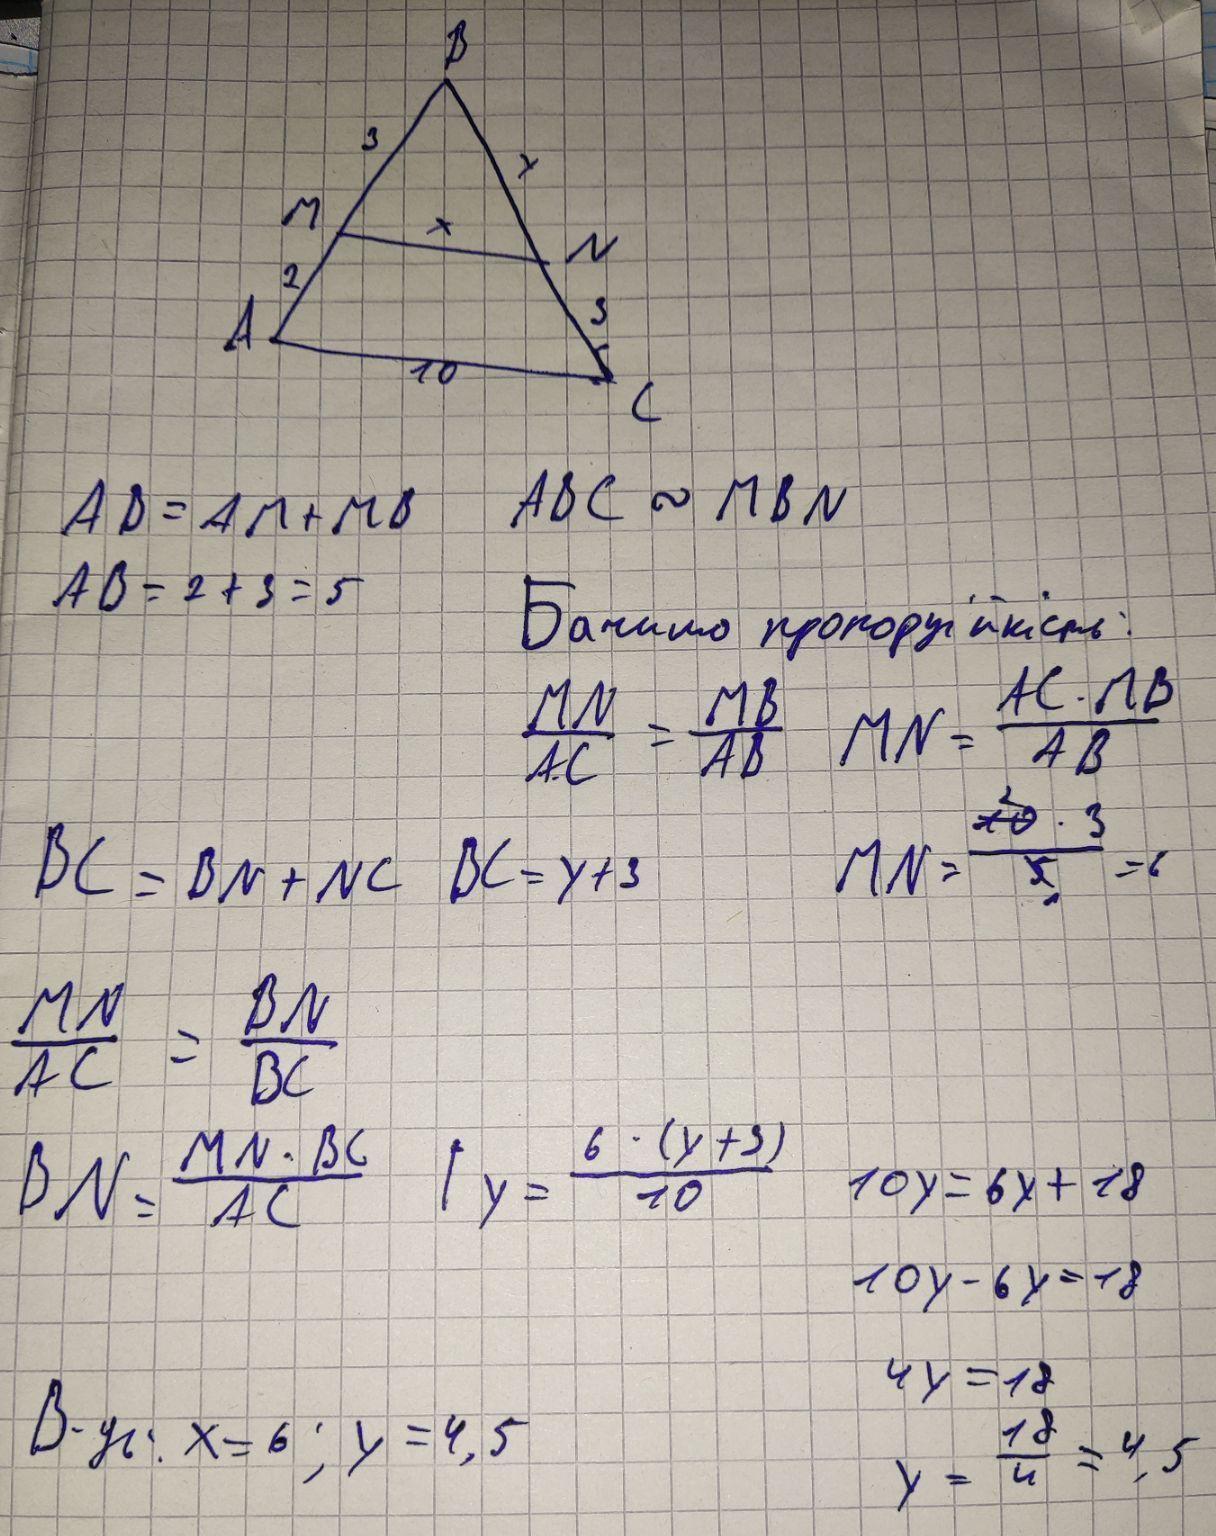 B
3
y
M
x
N
2
3
A
10
C
AB = AM + MB
ABC ~ MBN
AB = 2 + 3 = 5
Бачимо пропорційність:
MN/AC = MB/AB
MN = AC · MB/AB
MN = 10 · 3/5 = 6
2
1
BC = BN + NC
BC = y + 3
MN/AC = BN/BC
BN = MN · BC/AC
y = 6 · (y + 3)/10
10y = 6y + 18
10y - 6y = 18
4y = 18
y = 18/4 = 4,5
В-дь: x = 6; y = 4,5